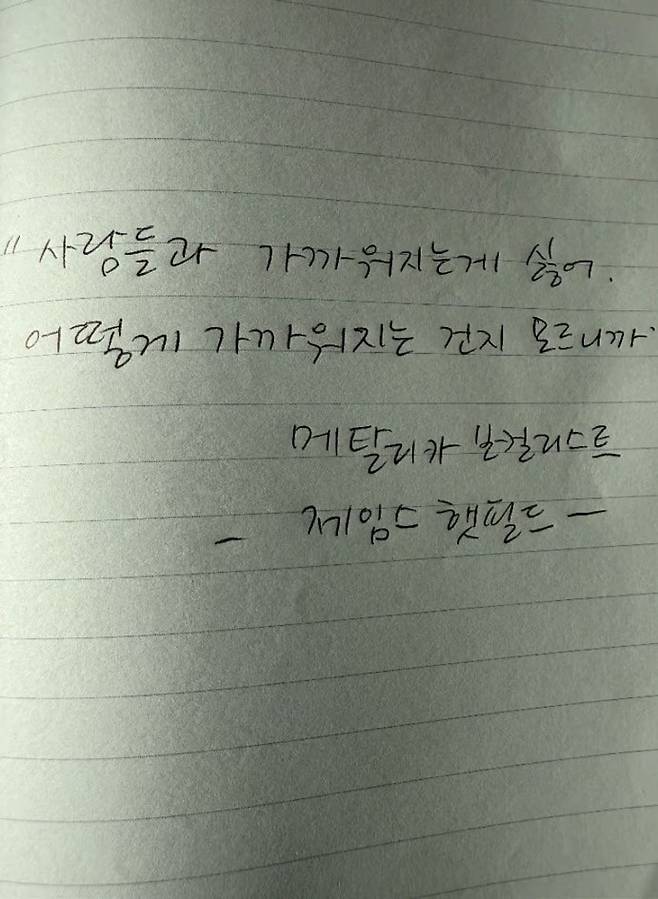 "사람들과 가까워지는게 싫어.
어떻게 가까워지는 건지 모르니까"
메탈리카 보컬리스트
- 제임스 햇필드 -